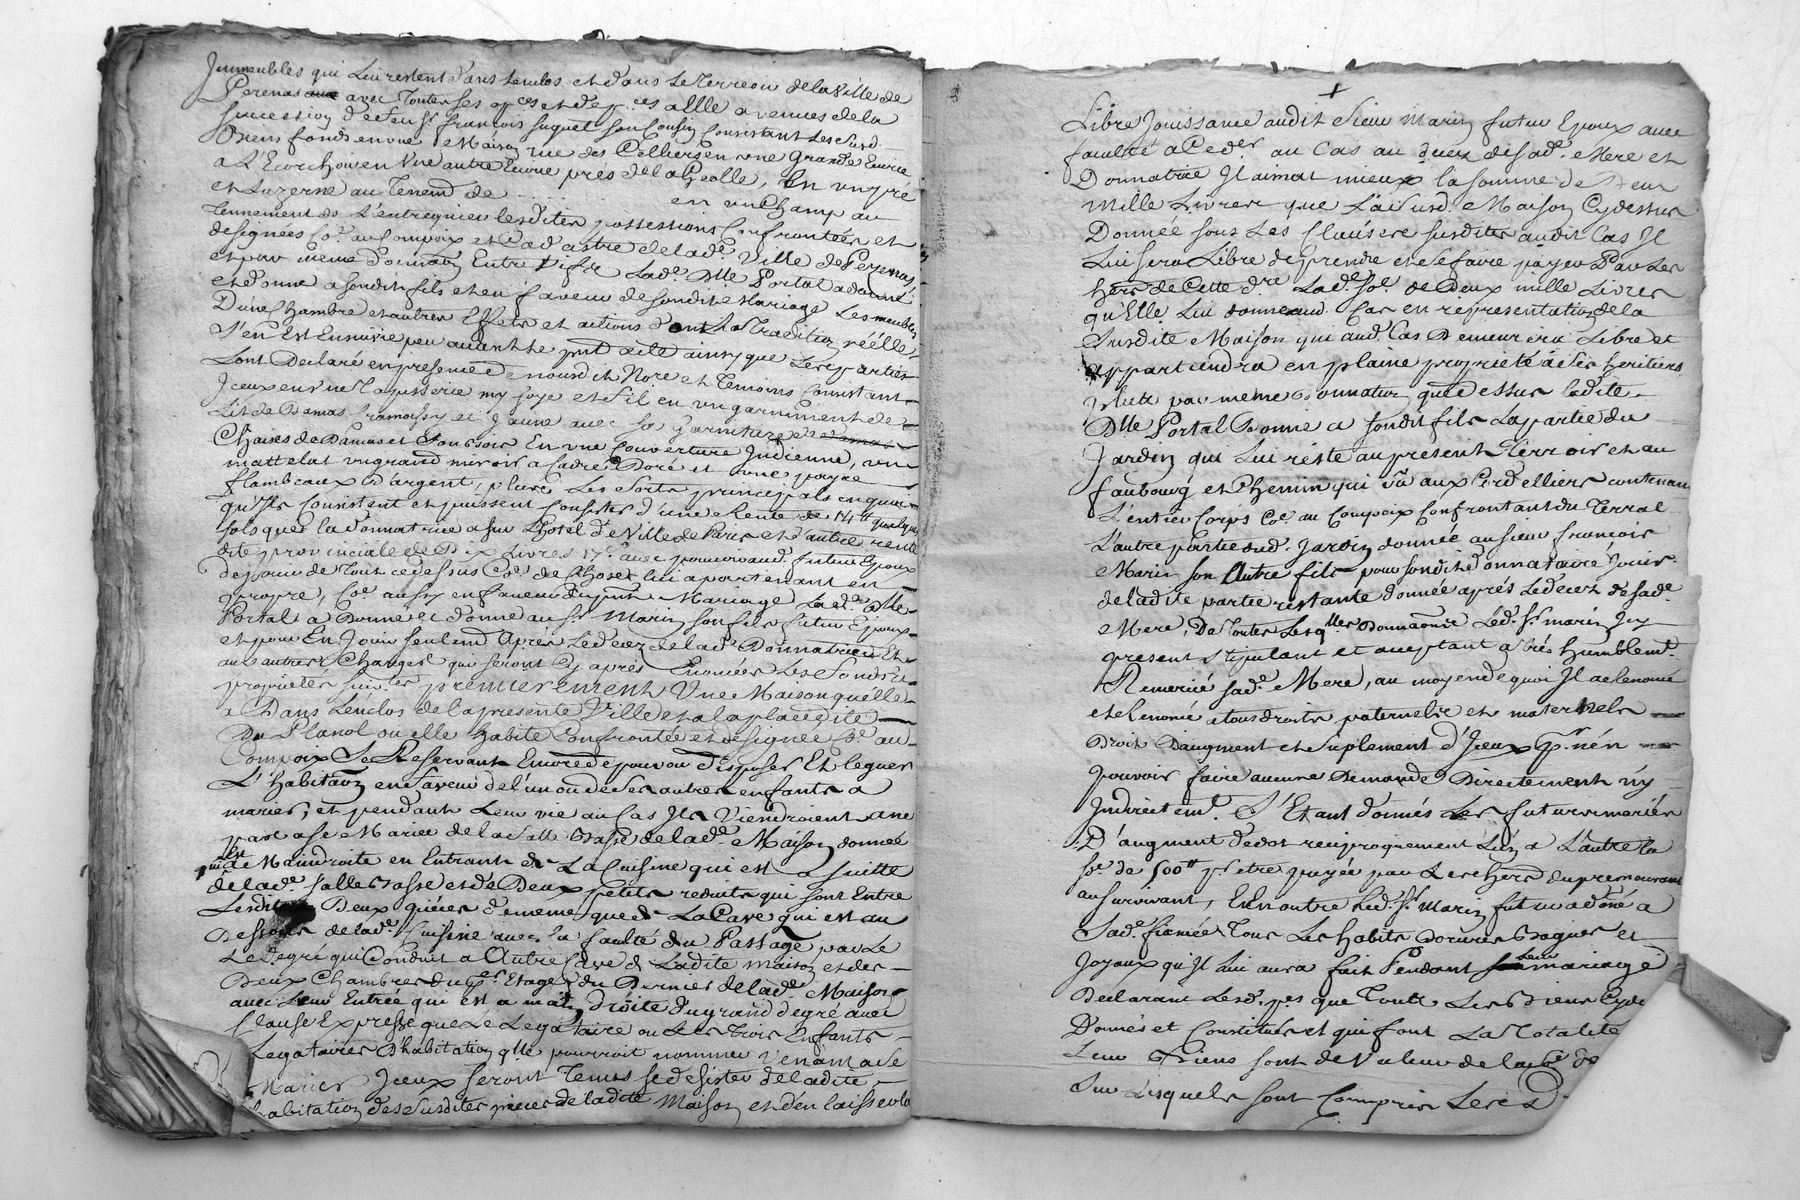 Immeubles qui lui restent dans lenclos et dans le Terroir de la Ville de
Pezenas avec toutes ses et a elle avenues de la
succession de feu Sr. françois huguet son Cousin Consistant Lesd
Biens fonds en une Maison rue des Celliers en une Grande Ecurie
a L'Ecorchou en Une autre Ecurie prés de la Geolle, En un pré
et Luzerne au Tenemt de en un Champ au
Tennement de L'entreqüieu lesdites possessions Confrontées et
designées Coe. au Compoix et Cadastre de lade. Ville de Pezenas,
et par meme donnation Entre Vifs lade. Dlle Portal a donné
et donne a sondit fils et en faveur de sondit Mariage Les meubles
D'une Chambre et autres Effets et actions dont la Tradition réélle,
s'en Est Ensuivie peu avant le pnt acte ainsy que Les parties
L'ont Declaré en presence de nousdit Nore et Temoins Consistant
Iceux en Une Tapisserie my soye et fil en un garniment de
Lit de Damas Cramoisy et Jaune avec sa garniture
Chaises de Damas et En une Couverture Indienne, un
mattelat un grand miroir a Cadre Doré et une paire
flambeaux d'argent, plus Les Sorts principals en quoi
qu'Ils Consistent et puissent Consister d'une Rente de 14tt quelques
sols que la donnatrice a sur L'hotel de Ville de Paris et d'autre rente
dite provinciale de Dix Livres 17s. avec pouvoir aud. futur Epoux
de jouir de Tout ce dessus Coe. de Choses lui apartenant en
propre, Coe. aussy en faveur du pnt Mariage La de. Dlle
Portal a Donné et donne au Sr. Marin son fils futur Epoux
et pour En Jouir seulemt Aprés Le decez de lade. Donnatrice Et
aux autres Charges qui seront Cy aprés Enoncées Les fonds et
proprietés suivtes premierement Une Maison qu'elle
a Dans Lenclos de la presente Ville et a la place dite
Du Planol ou elle habite Confrontée et designée Coe. au
Compoix Se Reservant Encore de pouvoir disposer Et leguer
L'habitaôn en faveur de l'un ou de Ses autres enfants a
marier, et pendant Leur vie au Cas Ils Viendroient a ne
pas a se Marier de la salle Basse de lade. Maison donnée
a Main droite en Entrant de La Cuisine qui est a suitte
de lade. salle Basse et de Deux petits reduits qui sont Entre
Lesdites Deux pièces de meme que de La Cave qui est au
Dessous de lade. Cuisine avec la faculté du Passage par Le
Degré qui Conduit a Autre Cave de Ladite maison et des
Deux Chambres du Etage du Dernier de lade. Maison
avec Leur Entrée qui est a main droite du grand degré avec
Clause Expresse que Le Legataire ou Les trois Enfants
Legataires D'habitation qlle pourroit nommer Venant a Se
Marier Iceux seront Tenus se desister de ladite
habitation des susdites pieces de ladite Maison et d'en laisser la
+
Libre Jouissance audit Sieur Marin futur Epoux avec
faculté a Ceder au Cas au decez de sade. Mere et
Donnatrice Il aimat mieux la somme de Deux
Mille Livres que La susde. Maison Cy dessus
Donnée sous Les Clauses susdites audit Cas Il
Lui sera Libre de prendre et se faire payer Par Les
hers. de Cette dre. Lade. Soe. de Deux mille Livres
qu'Elle Lui donne aud. Cas en representation de la
susdite Maison qui aud. Cas Demeurera Libre et
appartiendra en plaine proprieté à ses heritiers
Plus par meme Donnation que dessus ladite
Dlle Portal Donne a sondit fils La partie du
Jardin qui Lui réste au present Terroir et au
faubourg et Chemin qui va aux Cordelliers contenant
L'entier Corps Coe. au Compoix Confrontant du Terral
L'autre partie dud. Jardin donnée au sieur françois
Marin son Autre fils pour sondit donnataire Jouir
de ladite partie restante donnée aprés Le decez de sade.
Mere, De toutes Lesqlles Donnaons Led. Sr. Marin Icy
present stipulant et aceptant a trés humblemt.
Remercié sade. Mere, au moyen de quoi Il a Renoncé
et Renonce a tous droits paternels et maternels
Droit D'augment et Suplement d'Iceux pr. n'en
pouvoir faire aucune Demande Directement n'y
Indirectemt. S'Etant donnés Les futurs mariés
D'augment de dot reciproquement L'un a L'autre la
soe. de 500tt pr. etre payée par Les hers du premourant
au survivant, En outre Led. Sr. Marin futur a doné a
Sade. fiancée Tous Les habits Dorures Bagues et
Joyaux qu'Il lui aura fait Pendant Leur mariage
Déclarant Lesd. pes que Touts Les Biens Cy de
Donnés et Constitués et qui font La totalité
Leur Biens sont de Valeur de la soe. de
Sur Lesquels sont Compris Les